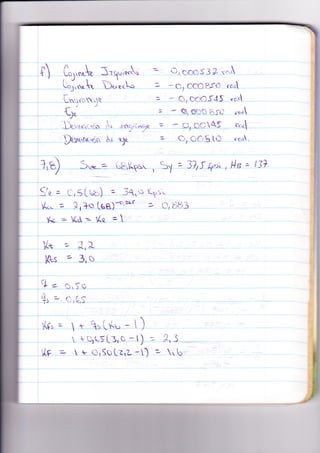 f) Cojinete Izquierdo = 0,000532 rad
Cojinete Derecho = -0,000850 rad
Engranaje = -0,000545 rad
Eje = -0,000850 rad
= -0,00145 rad
= 0,00510 rad.
7,8) Sut = 68Kpsi, Sy = 37,5 Kpsi, HB = 137
S'e = 0,5(68) = 34,0 Kpsi
Ka = 2,70(68)^-0,265 = 0,883
Kc = Kd = Ke = 1
Kt = 2,2
Kts = 3,0
q = 0,50
qs = 0,65
Kfs = 1 + qs(Kts - 1)
1 + 0,65(3,0 - 1) = 2,3
Kf = 1 + 0,50(2,2 - 1) = 1,6